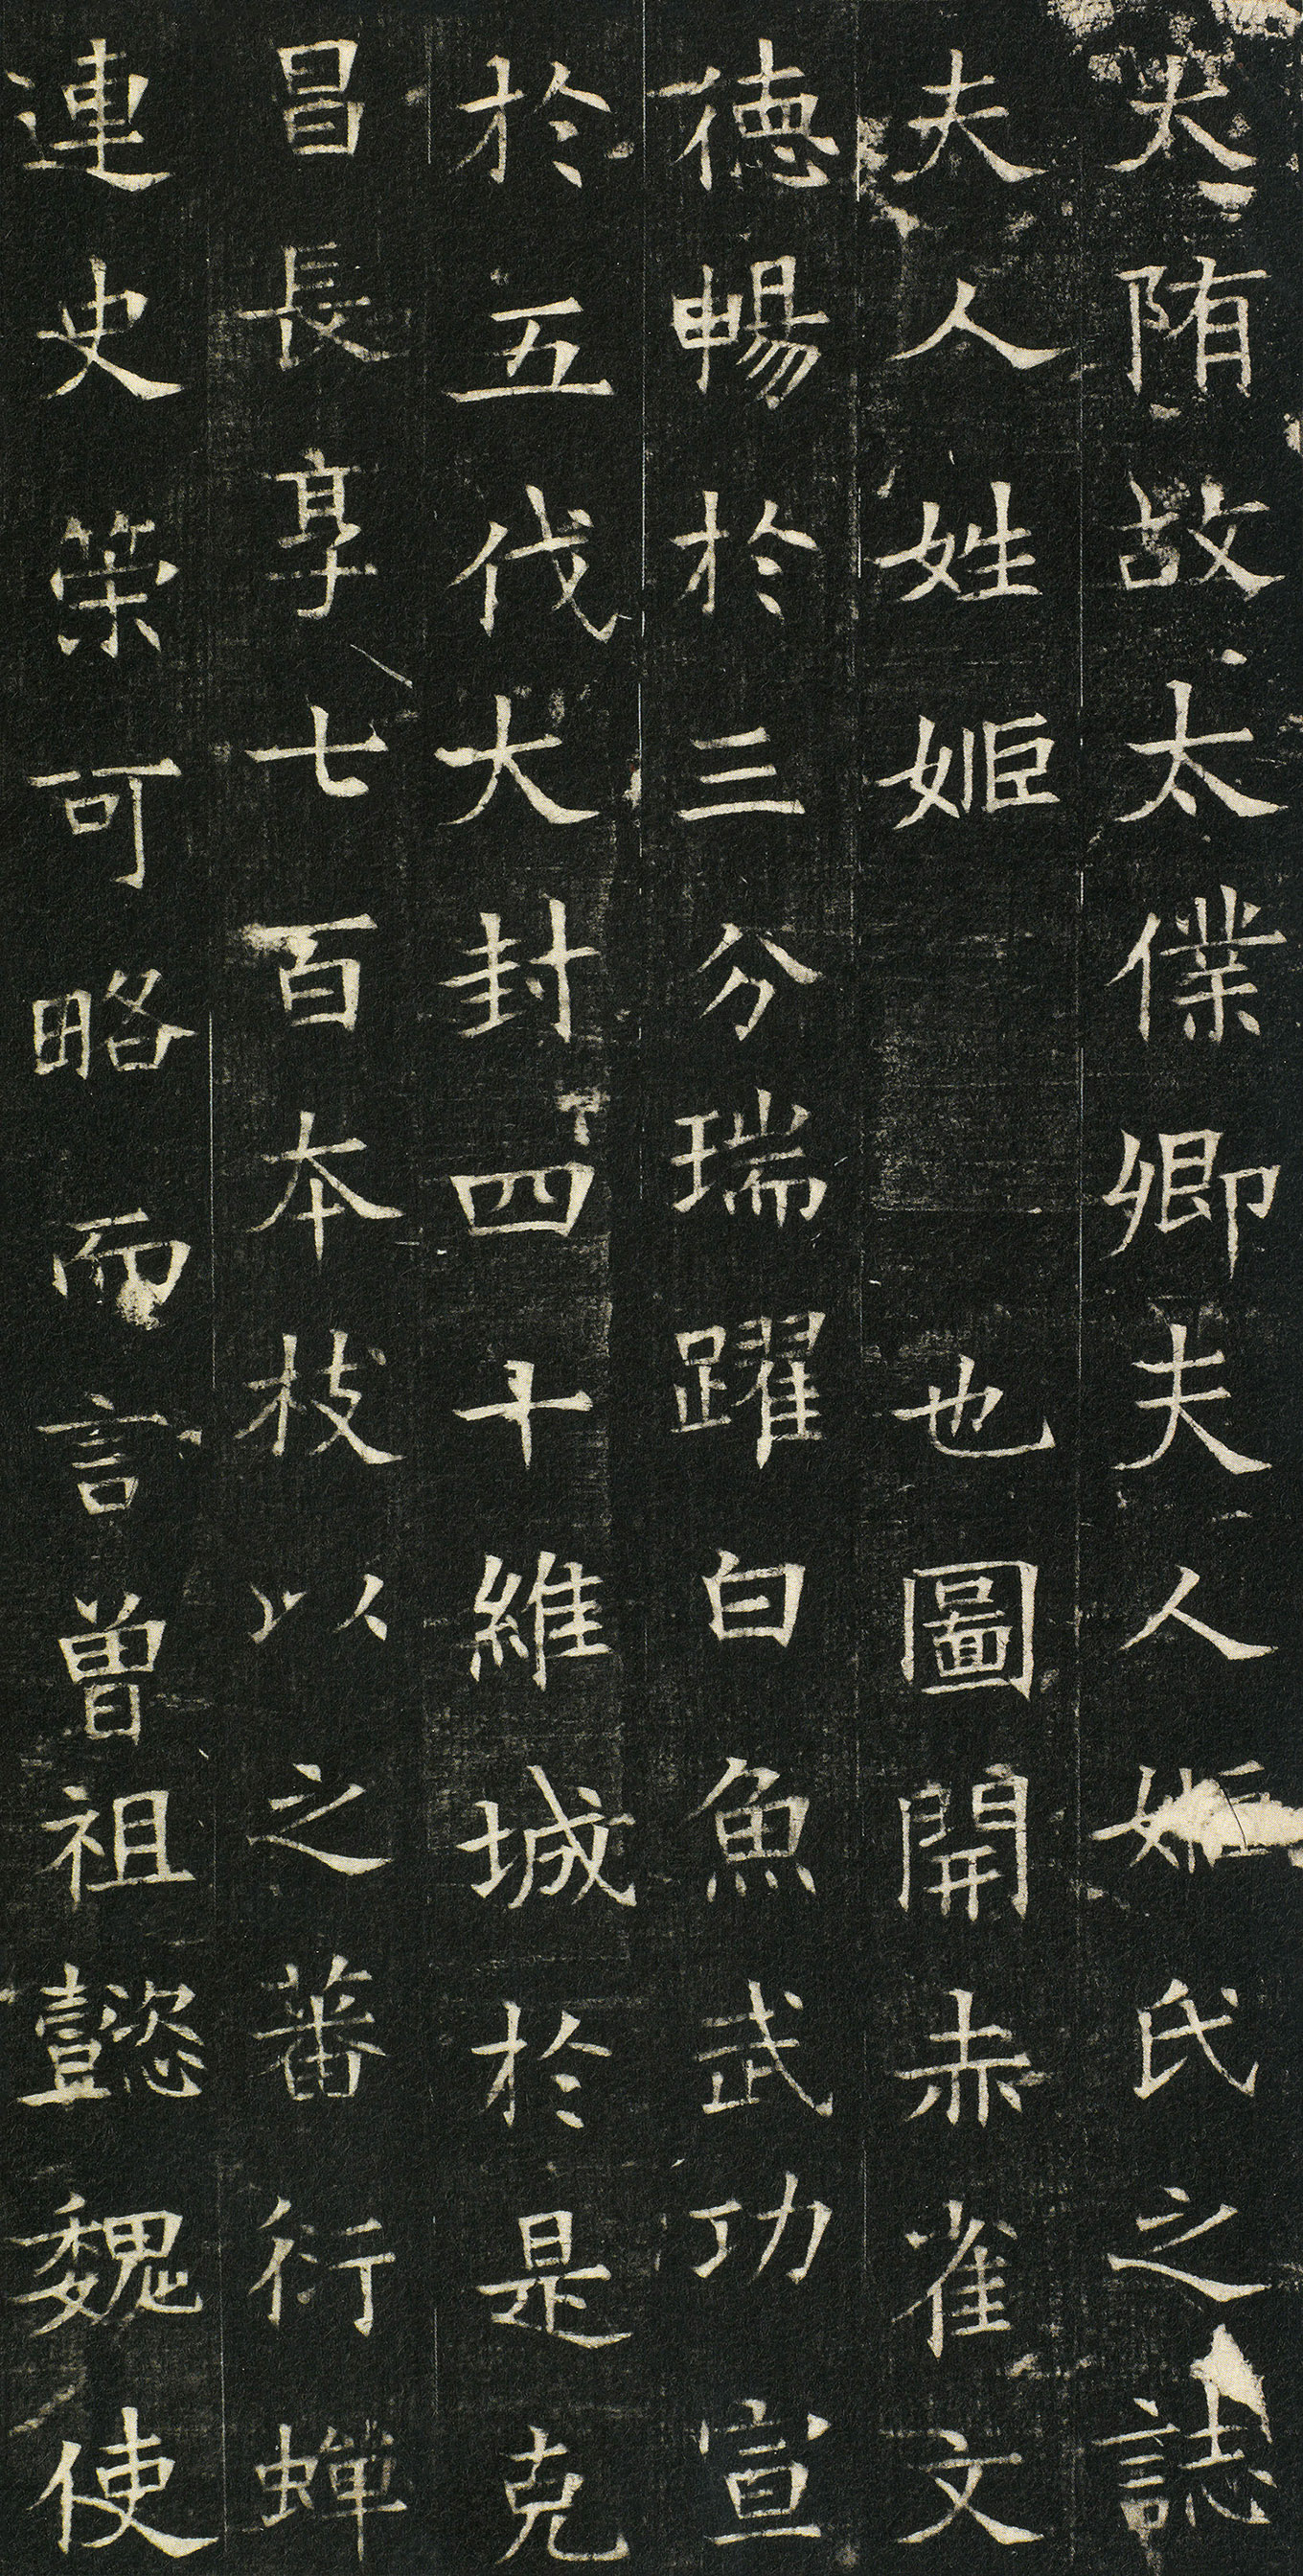 大隋故太僕卿夫人姬氏之誌
夫人姓姬也圖開赤雀文
德暢於三分瑞躍白魚武功宣
於五伐大封四十維城於是克
昌長享七百本枝以之蕃衍蟬
連史策可略而言曾祖懿魏使